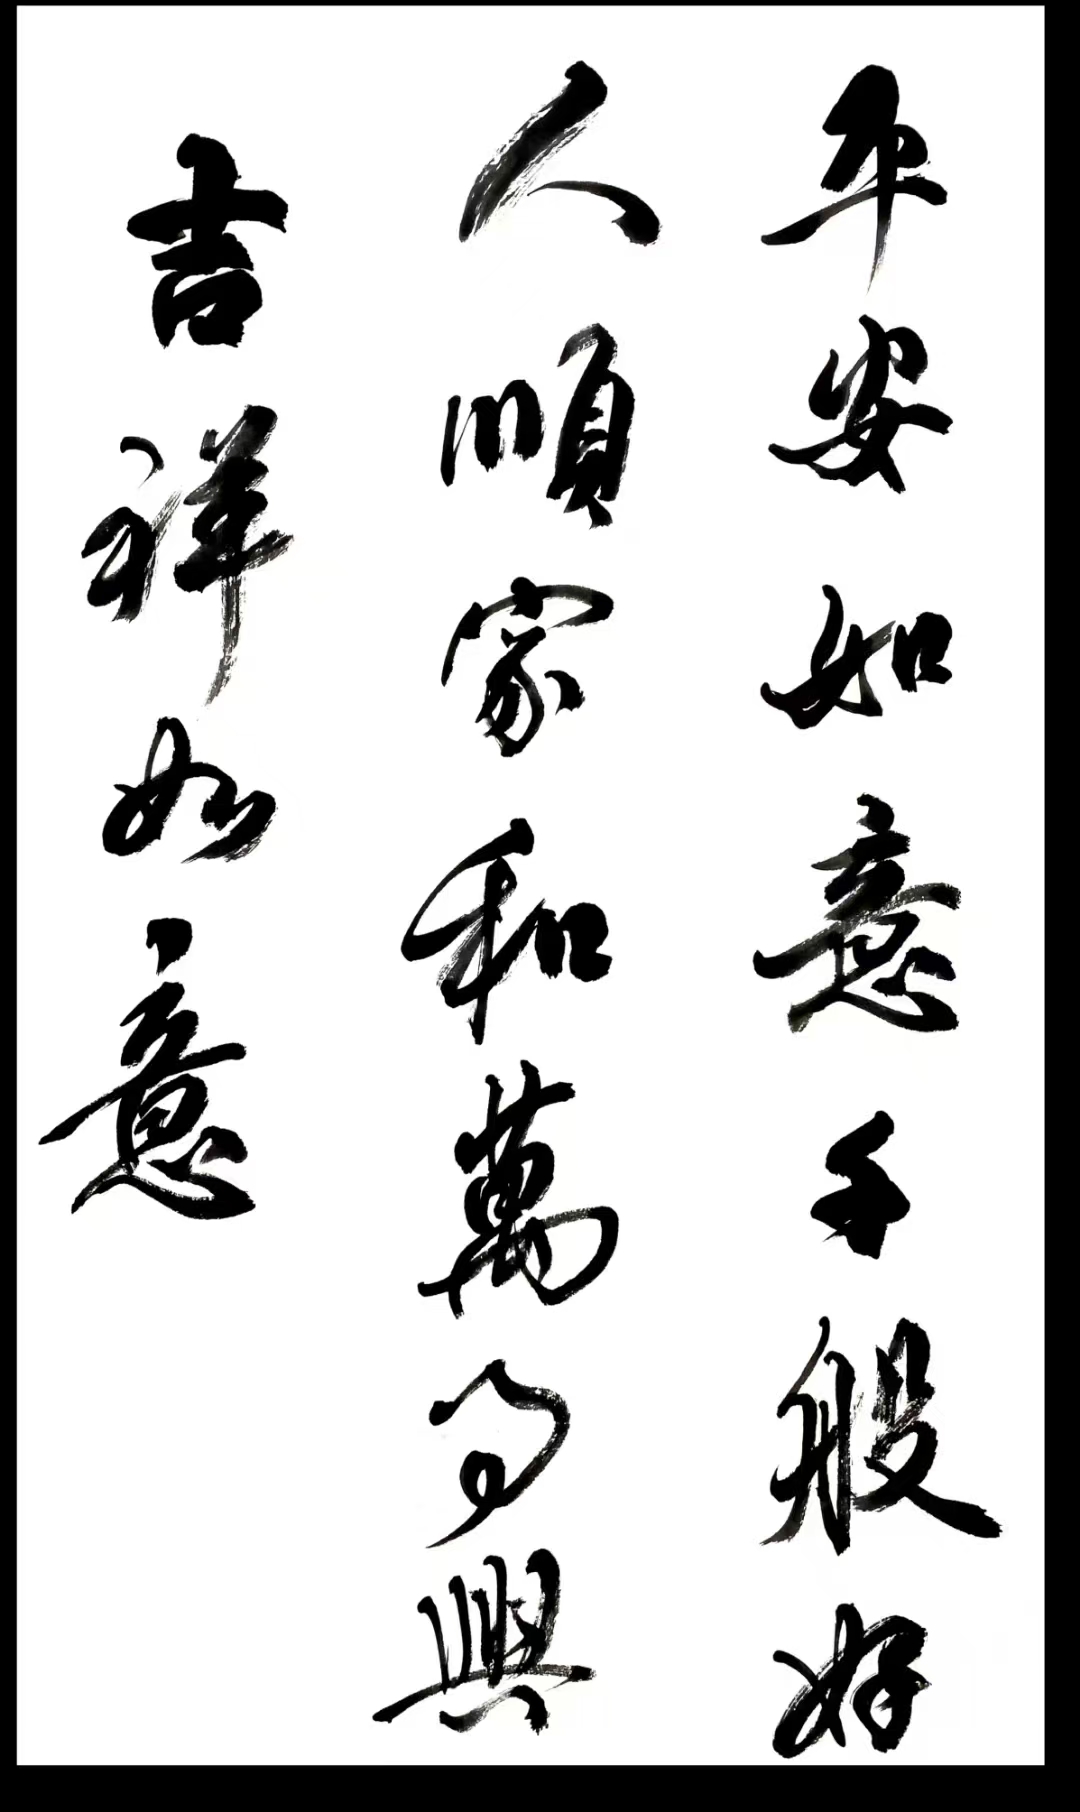 平安如意千般好
人順家和萬事興
吉祥如意